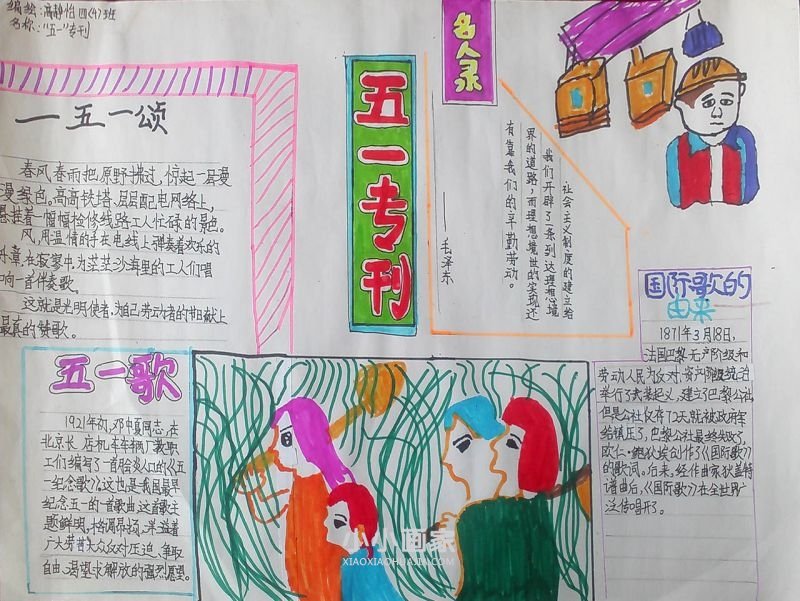 编绘:高静怡 四(4)班
名称:“五一”专刊
一五一颂
春风,春雨把原野拂过,惊起一层漫
漫绿色。高高铁塔、层层配电网络上,
悬挂着一幅幅检修线路工人忙碌的景色。
风,用温情的手在电线上弹奏着欢乐的
乐章,在寂寥中,为茫茫沙海里的工人们唱
响一首伴奏歌。
这就是光明使者,为自己劳动者的
最真的赞歌。
五一专刊
名人录
社会主义制度的建立给
我们开辟了一条到达理想境
界的道路,而理想境
有靠我们的辛勤劳动。
——毛泽东
国际歌的
由来
1871年3月18日,
法国巴黎无产阶级和
劳动人民为反对资产阶级统治
举行了武装起义,建立了巴黎公社
但是公社仅存72天就被政府军
给镇压了,巴黎公社最终失败了,
欧仁·鲍狄埃创作了《国际歌》
的歌词。后来,经作曲家狄盖特
谱曲后,《国际歌》在全世界广
泛传唱开了。
五一歌
1921年初,邓中夏同志,在
北京长
工们编写了一首脍炙人口的《五
一纪念歌》这也是我国最早
纪念五一的一首歌曲,这首歌主
题鲜明,格调昂扬,洋溢着
广大劳苦大众反对压迫、争取
自由、渴望求解放的强烈愿望。
小小画家
XIAOXIAOHUAJIA.COM